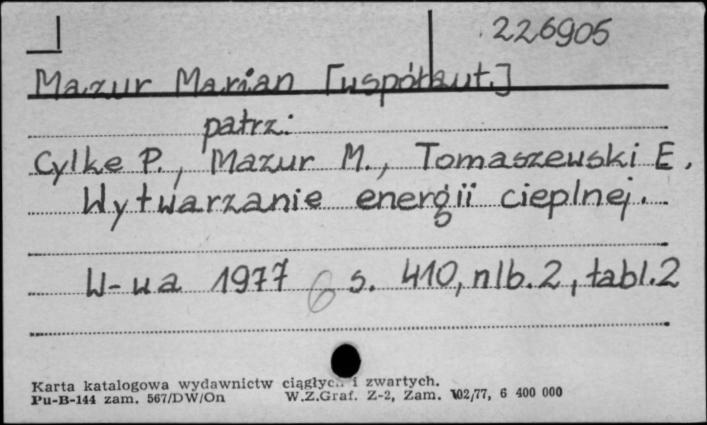 226905
Mazur Marian [współaut.]
patrz:
Cylke P., Mazur M., Tomaszewski E.
Wytwarzanie energii cieplnej.
W-wa 1977 6 s. 410, nlb. 2, tabl. 2
Karta katalogowa wydawnictw ciągłych i zwartych.
Pu-B-144 zam. 567/DW/On W.Z.Graf. Z-2, Zam. 102/77, 6 400 000